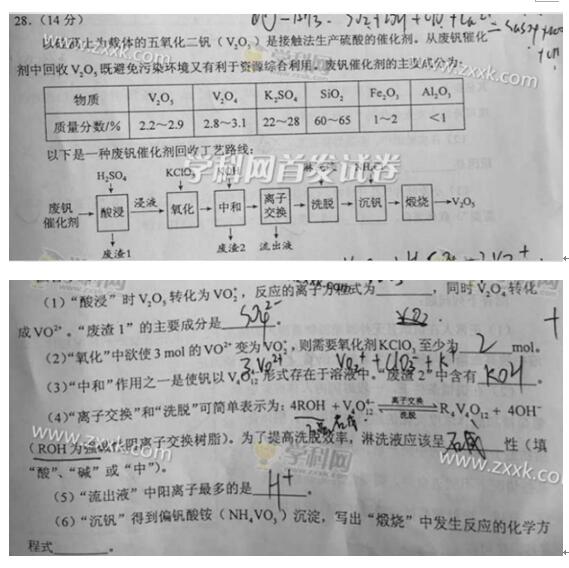 28.(14分)
以硅藻土为载体的五氧化二钒(V₂O₅)是接触法生产硫酸的催化剂。从废钒催化
剂中回收V₂O₅既避免污染环境又有利于资源综合利用。废钒催化剂的主要成分为:
物质 V₂O₅ V₂O₄ K₂SO₄ SiO₂ Fe₂O₃ Al₂O₃
质量分数/% 2.2~2.9 2.8~3.1 22~28 60~65 1~2 <1
以下是一种废钒催化剂回收工艺路线:
学科网首发试卷
H₂SO₄ KClO₃
废钒催化剂 酸浸 浸液 氧化 中和 离子交换 洗脱 沉钒 煅烧 V₂O₅
废渣1 废渣2 流出液
www.zxxk.com
(1)“酸浸”时V₂O₅转化为VO₂⁺,反应的离子方程式为______,同时V₂O₄转化
成VO²⁺。“废渣1”的主要成分是 SiO₂
(2)“氧化”中欲使3 mol的VO²⁺变为VO₂⁺,则需要氧化剂KClO₃至少为 2 mol。
(3)“中和”作用之一是使钒以V₄O₁₂⁴⁻形式存在于溶液中。“废渣2”中含有 KOH 。
(4)“离子交换”和“洗脱”可简单表示为:4ROH + V₄O₁₂⁴⁻ 离子交换 洗脱 R₄V₄O₁₂ + 4OH⁻
(ROH为强碱性阴离子交换树脂)。为了提高洗脱效率,淋洗液应该呈______性(填
“酸”、“碱”或“中”)。
(5)“流出液”中阳离子最多的是 H⁺ 。
(6)“沉钒”得到偏钒酸铵(NH₄VO₃)沉淀,写出“煅烧”中发生反应的化学方
程式______。
学科网
www.zxxk.com